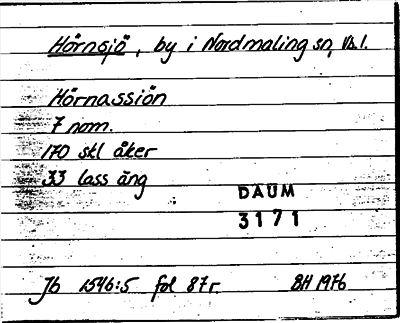 Hörnsjö, by i Nordmaling sn, Vb.l.
Hörnassiön
7 nom.
170 skl åker
33 lass äng
DAUM
3171
Jb 1546:5 fol 87r BH 1976